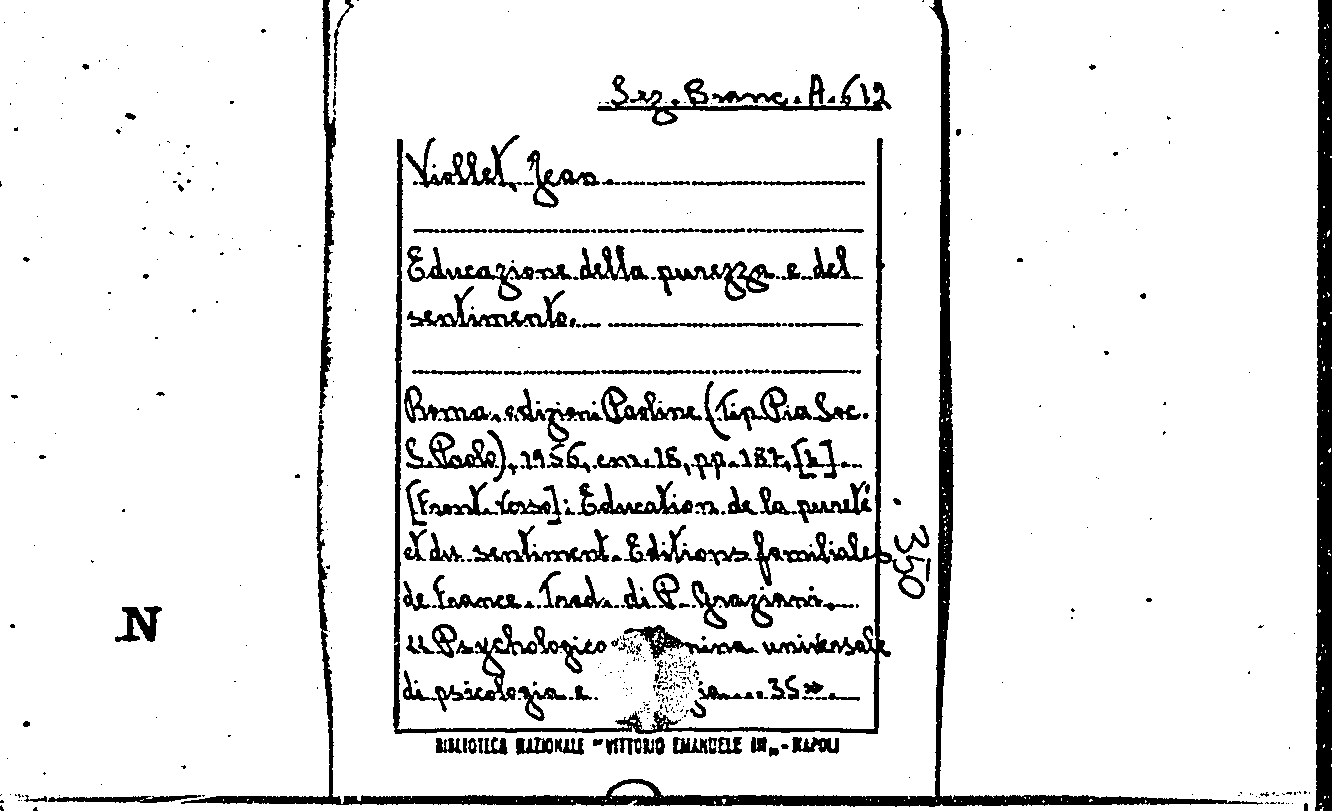 Sez. Branc. A. 612
Viollet, Jean.
Educazione della purezza e del
sentimento.
Roma, edizioni Paoline (Tip. Pia Soc.
S. Paolo), 1956, cm. 18, pp. 187, [1].
[Front. verso]: Education de la pureté
et du sentiment. Editions familiales
de France. Trad. di P. Graziani.
350
N
"Psychologica universale
di psicologia e 35».
BIBLIOTECA NAZIONALE "VITTORIO EMANUELE III" - NAPOLI